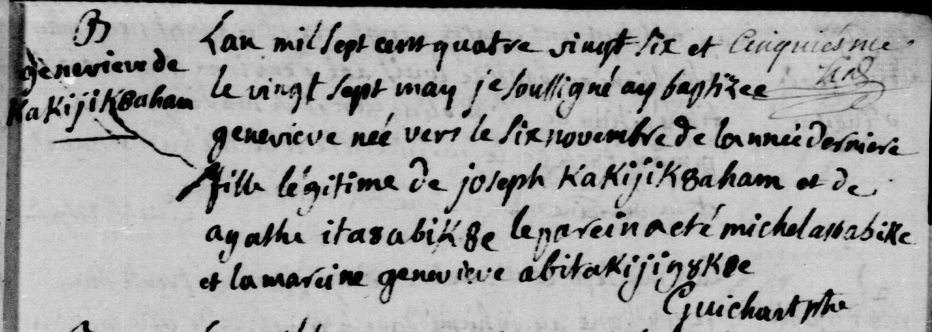 B
genevieve de
KaKijiK8aham
Lan mil sept cent quatre vingt six et
le vingt sept may je soussigné ay baptizée
genevieve née vers le six novembre de lannée derniere
fille légitime de joseph KaKijiK8aham et de
agathe ita8abiK8e le parein a eté michel
et la mareine genevieve abitaKijig8K8e
Guichart ptre